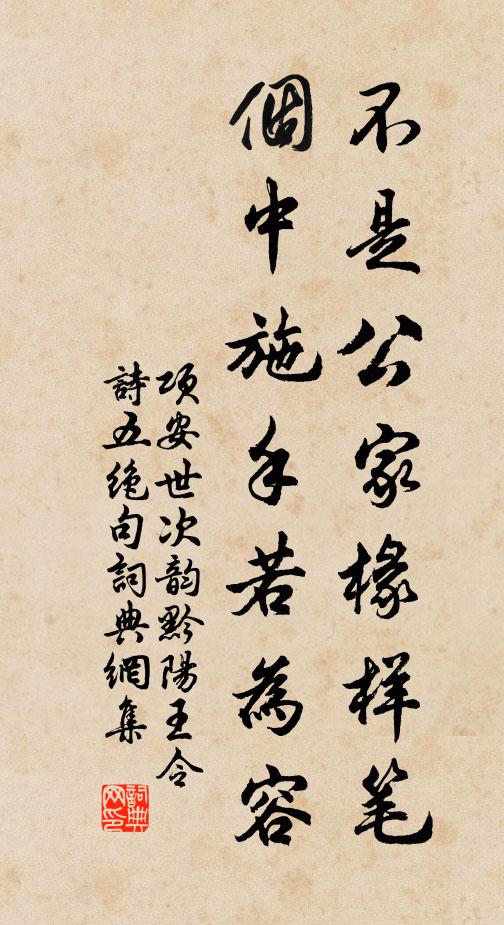 不是公家椽样笔
個中施手若為容
項安世次韵黔陽王令
詩五絶句詞典網集
詞典网印